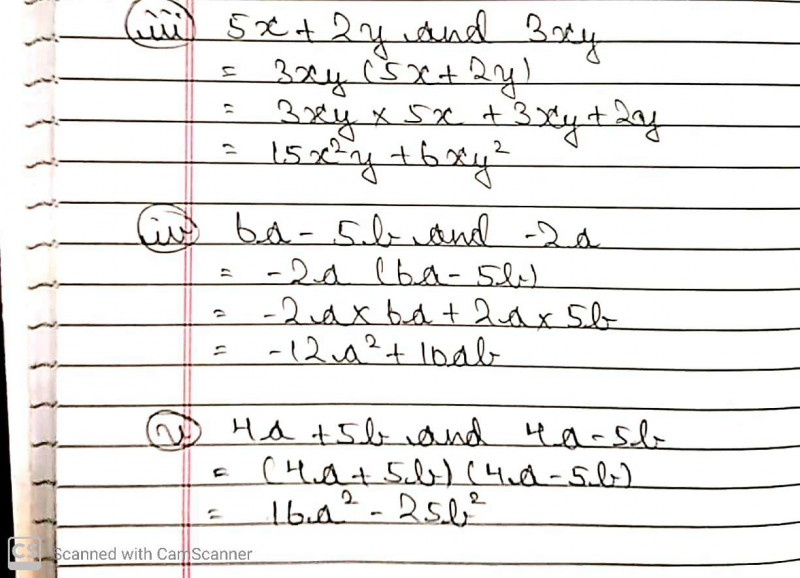 (iii) 5x + 2y and 3xy
= 3xy (5x + 2y)
= 3xy × 5x + 3xy + 2y
= 15x²y + 6xy²
(iv) 6a - 5b and -2a
= -2a (6a - 5b)
= -2a × 6a + 2a × 5b
= -12a² + 10ab
(v) 4a + 5b and 4a - 5b
= (4a + 5b) (4a - 5b)
= 16a² - 25b²
CS Scanned with CamScanner